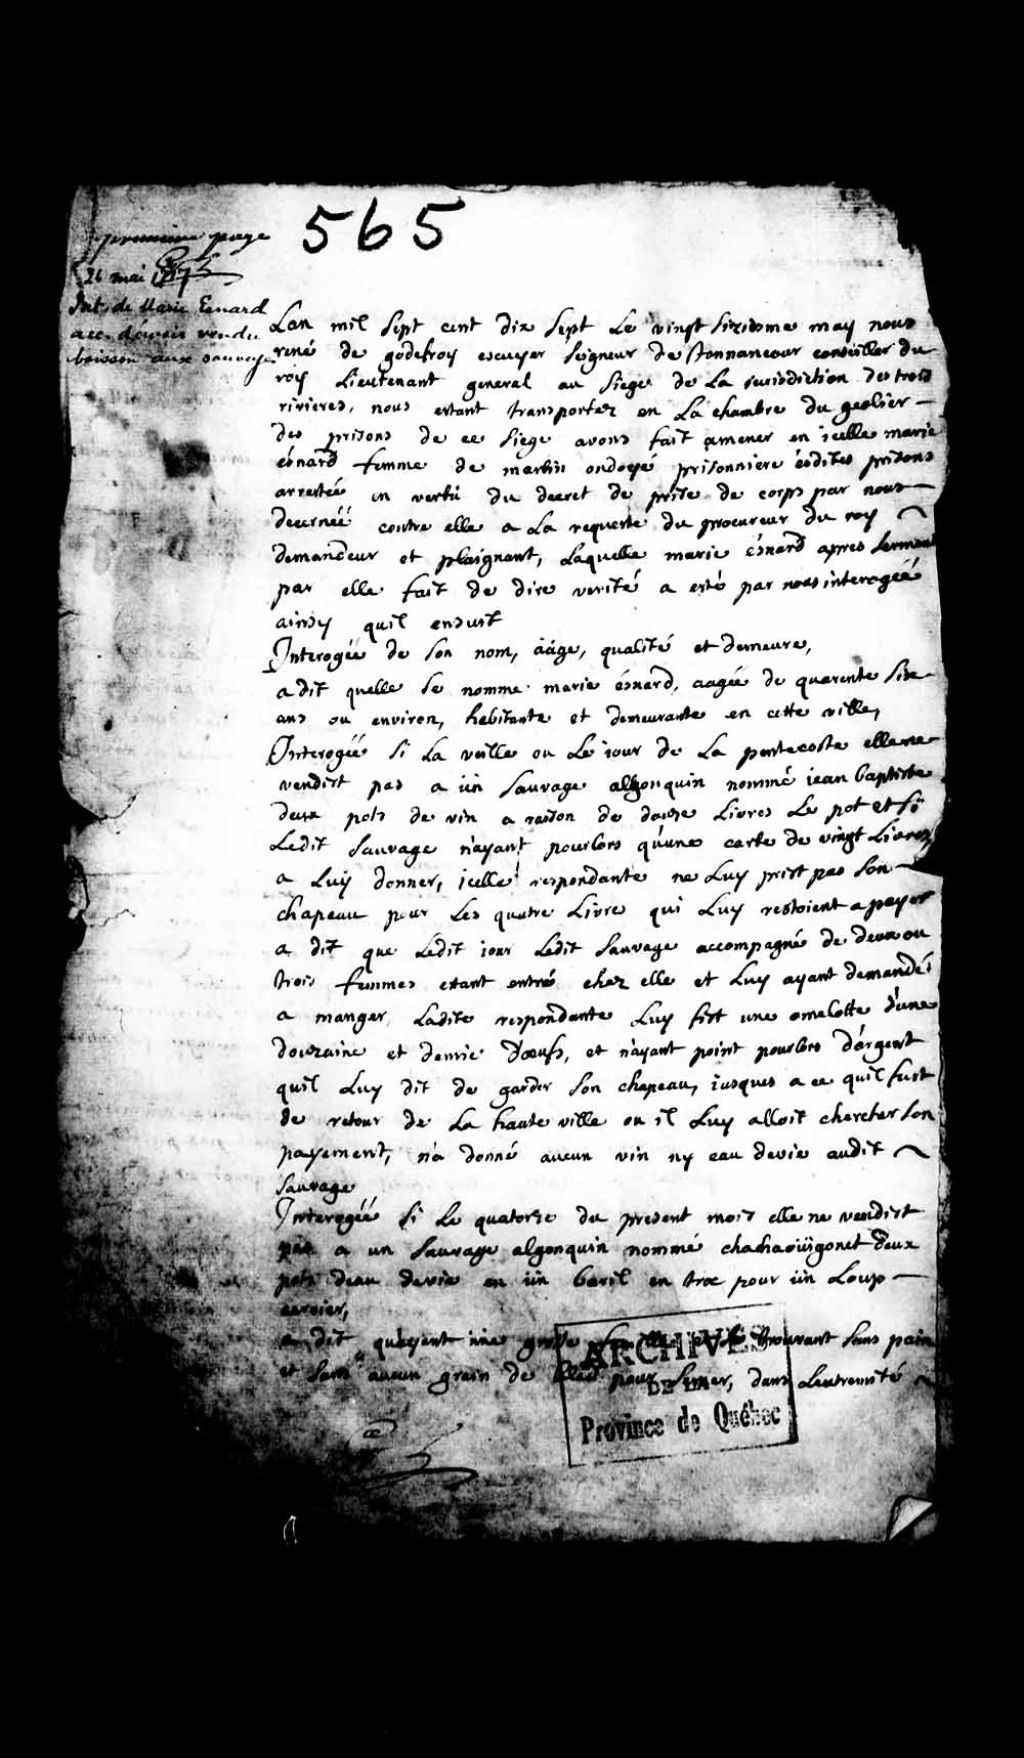 565
premiere page
26 mai 1717
Int. de Marie Esnard
acc. d'avoir vendu
boisson aux sauvages
Lan mil sept cent dix sept le vingt sixiesme may nous
rené de godefroy escuyer seigneur de tonnancour conseiller du
roy lieutenant general au siege de la jurisdiction des trois
rivieres, nous estant transportez en la chambre du geolier
des prisons de ce siege avons fait amener en icelle marie
esnard femme de martin ondoyé prisonniere esdites prisons
arrestée en vertu du decret de prise de corps par nous
decernéé contre elle a la requeste du procureur du roy
demandeur et plaignant, laquelle marie esnard apres serment
par elle fait de dire verité a esté par nous interogéé
ainsy quil ensuit
Interogéé de son nom, ââge, qualité et demeure,
a dit quelle se nomme marie esnard, aagée de quarente six
ans ou environ, habitante et demeurante en cette ville,
Interogéé si la veille ou le jour de la pentecoste elle ne
vendist pas a un sauvage algonquin nommé jean baptiste
deux pots de vin a raison de douze livres le pot et si
ledit sauvage n'ayant pourlors qu'une carte de vingt livres
a luy donner, icelle respondante ne luy prist pas son
chapeau pour les quatre livre qui luy restoient a payer
a dit que ledit jour ledit sauvage accompagné de deux ou
trois femmes estant entré chez elle et luy ayant demandé
a manger ladite respondante luy fist une omelotte d'une
douzaine et demie d'oeufs, et n'ayant point pourlors d'argent
quil luy dit de garder son chapeau, jusques a ce quil fust
de retour de la haute ville ou il luy alloit chercher son
payement, n'a donné aucun vin ny eau devie audit
sauvage
Interogéé si le quatorze du present mois elle ne vendist
pas a un sauvage algonquin nommé chachaouigonet deux
pots deau devie en un baril en troc pour un loup
cervier,
a dit qu'ayant une grosse famille et se trouvant sans pain
et sans aucun grain de bled pour semer, dans lextremité
ARCHIVES
DE LA
Province de Québec